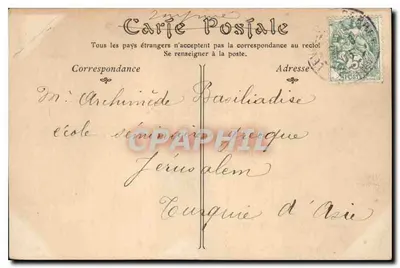 Carte Postale
Tous les pays étrangers n'acceptent pas la correspondance au recto
Se renseigner à la poste.
Correspondance
Adresse
Mr. Archimède Basiliadise
école séminaire grecque
CPAPHIL
Jérusalem
Turquie d'Asie